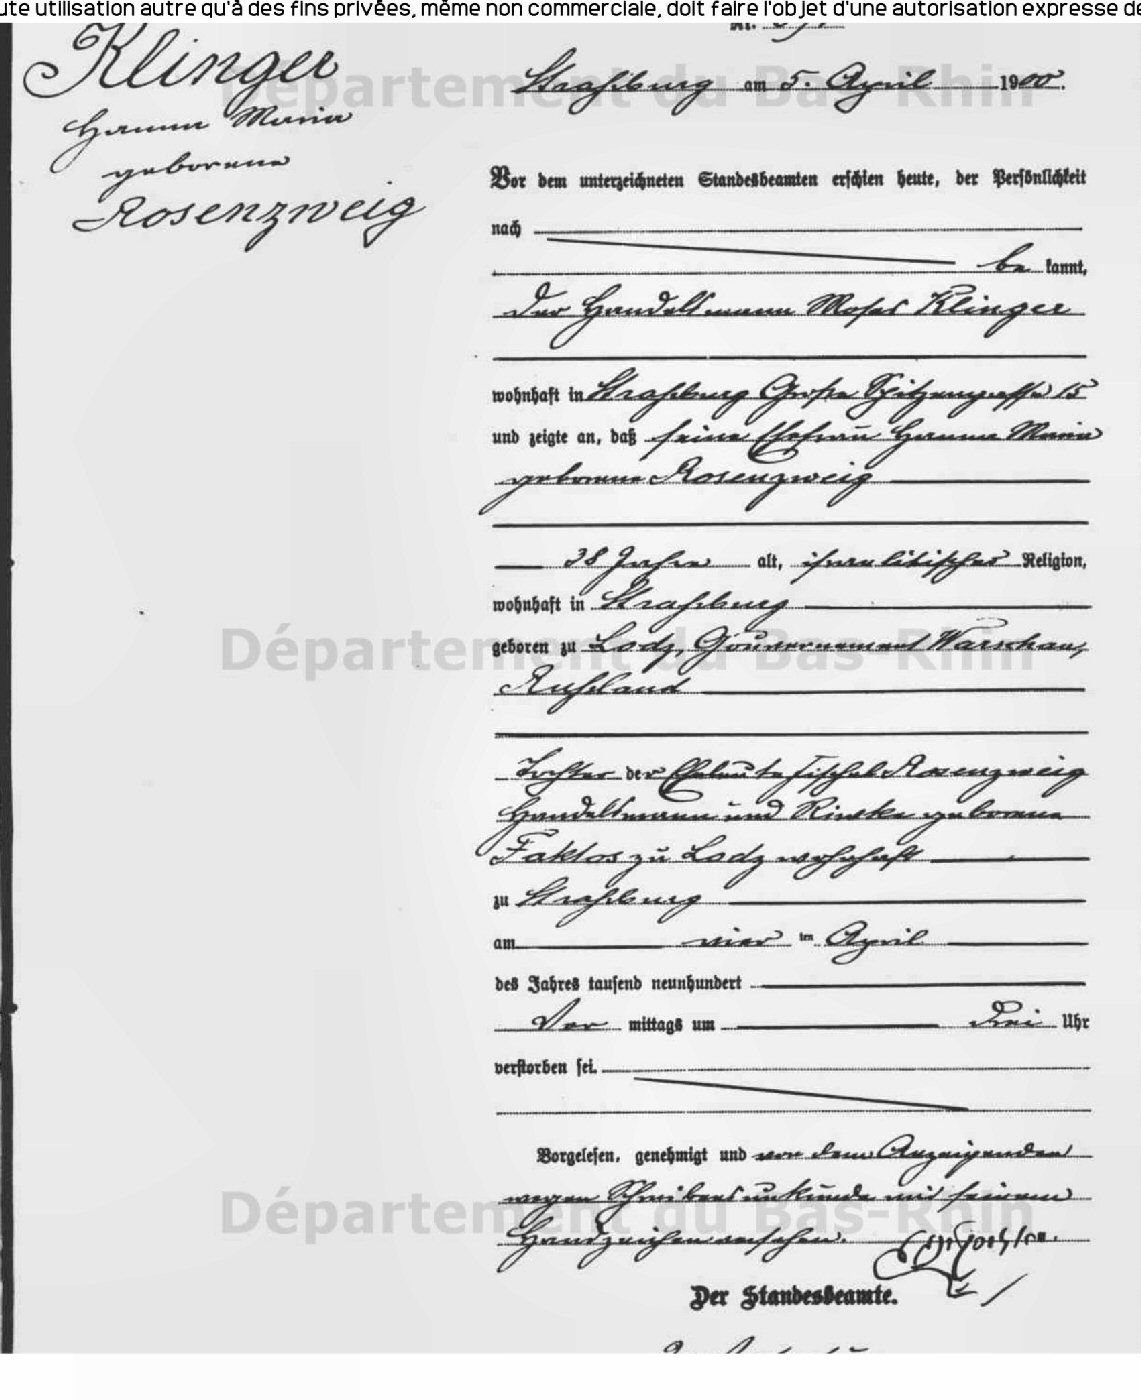 ute utilisation autre qu'à des fins privées, même non commerciale, doit faire l'objet d'une autorisation expresse de
Klinger
Hanna Maria
geborene
Rosenzweig
Nr.
Straßburg am 5. April 1900.
Vor dem unterzeichneten Standesbeamten erschien heute, der Persönlichkeit
nach
be kannt,
der Handelsmann Moses Klinger
wohnhaft in Straßburg Große Spitzengasse 15
und zeigte an, daß seine Ehefrau Hanna Maria
geborene Rosenzweig
38 Jahre alt, israelitischer Religion,
wohnhaft in Straßburg
geboren zu Lodz, Gouvernement Warschau,
Rußland
Tochter der Eheleute Fischel Rosenzweig
Handelsmann und Riwka geborene
Faktos zu Lodz wohnhaft
zu Straßburg
am vier ten April
des Jahres tausend neunhundert
Vor mittags um drei Uhr
verstorben sei.
Vorgelesen, genehmigt und von dem Anzeigenden
wegen Schreibensunkunde mit seinem
Handzeichen versehen.
Der Standesbeamte.
Département du Bas-Rhin
Département du Bas-Rhin
Département du Bas-Rhin